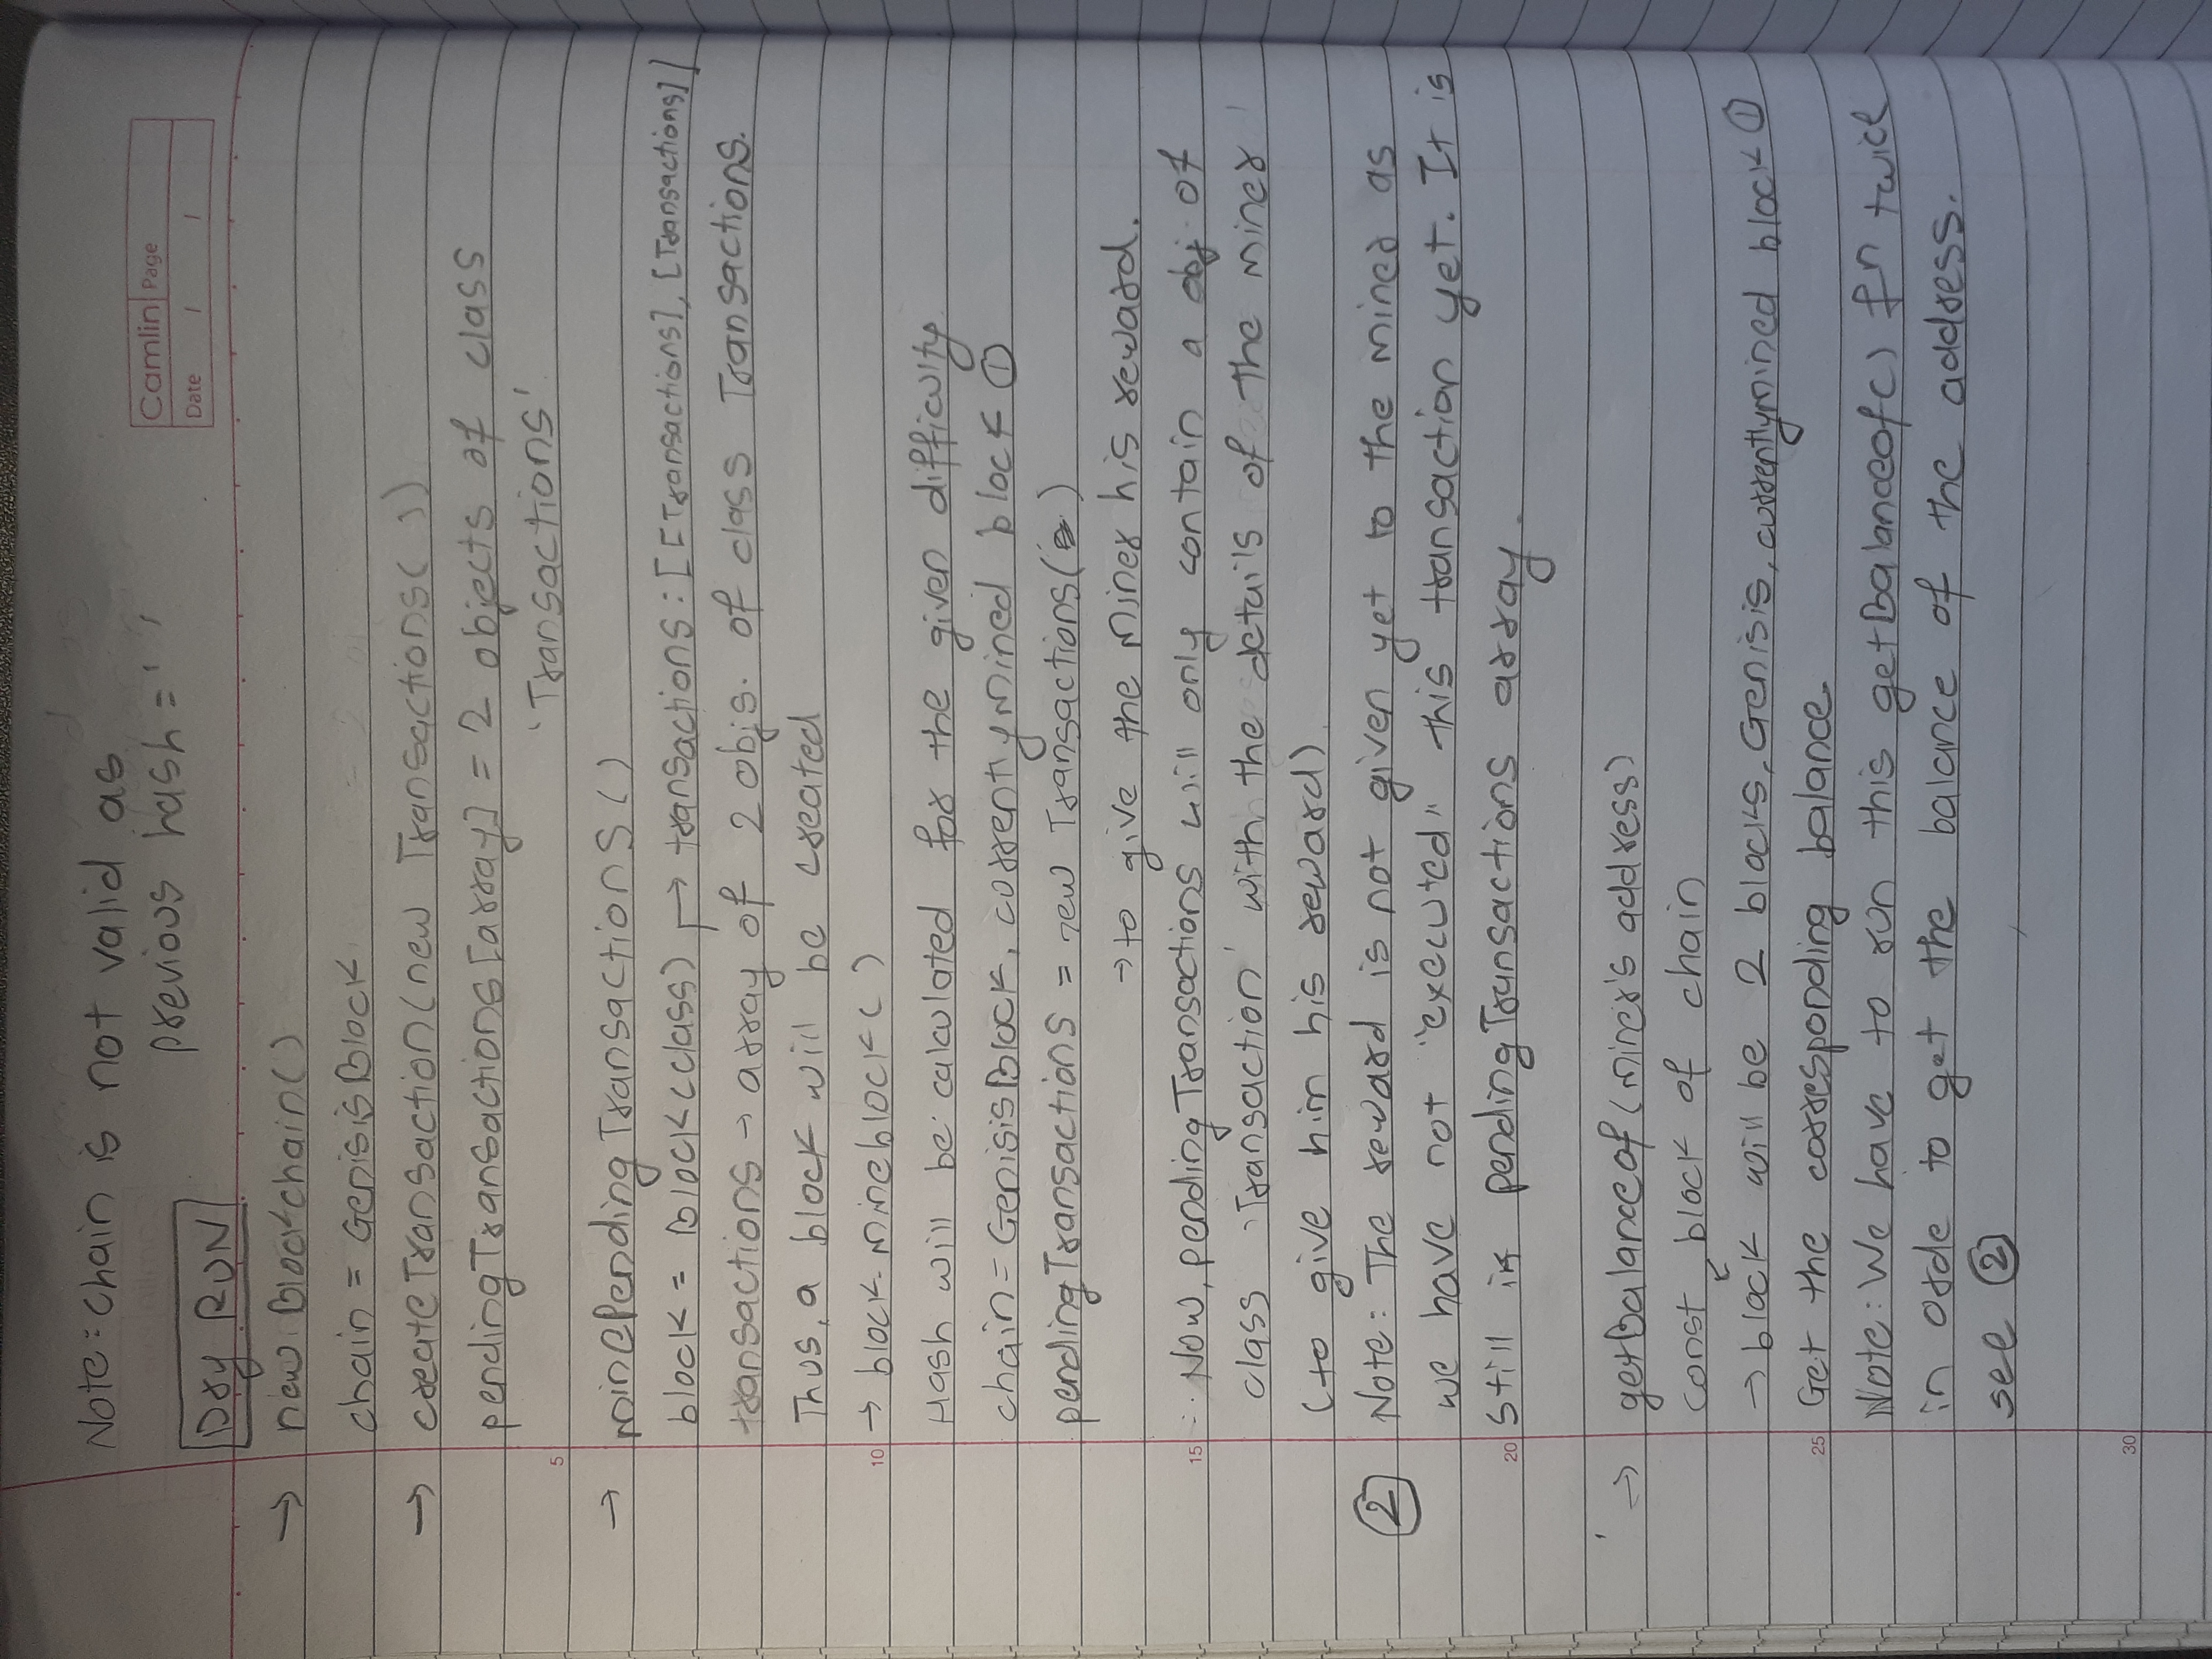 Note: chain is not valid as
previous hash = ' '
Camlin Page
Date / /
Dry RUN
→ new Blockchain()
chain = GenisisBlock
→ createTransaction(new Transactions( ))
pendingTransactions[array] = 2 objects of class
'Transactions'
5
→ minePendingTransactions()
block = Block(class) → transactions: [[Transactions], [Transactions]]
transactions → array of 2 objs. of class Transactions.
Thus, a block will be created
10 → block.mineblock( )
Hash will be calculated for the given difficulty
chain = GenisisBlock, currentlymined block ①
pendingTransactions = new Transactions( )
→ to give the miner his reward.
15 ∴ Now, pendingTransactions will only contain a obj of
class 'Transaction' with the details of the miner
(to give him his reward)
② Note: The reward is not given yet to the miner as
we have not "executed" this transaction yet. It is
20 still in pendingTransactions array.
→ getBalanceof(miner's address)
const block of chain
→ block will be 2 blocks, Genisis, currentlymined block ①
25 Get the corresponding balance.
Note: We have to run this getBalanceof() fn twice
in orde to get the balance of the address.
see ②
30